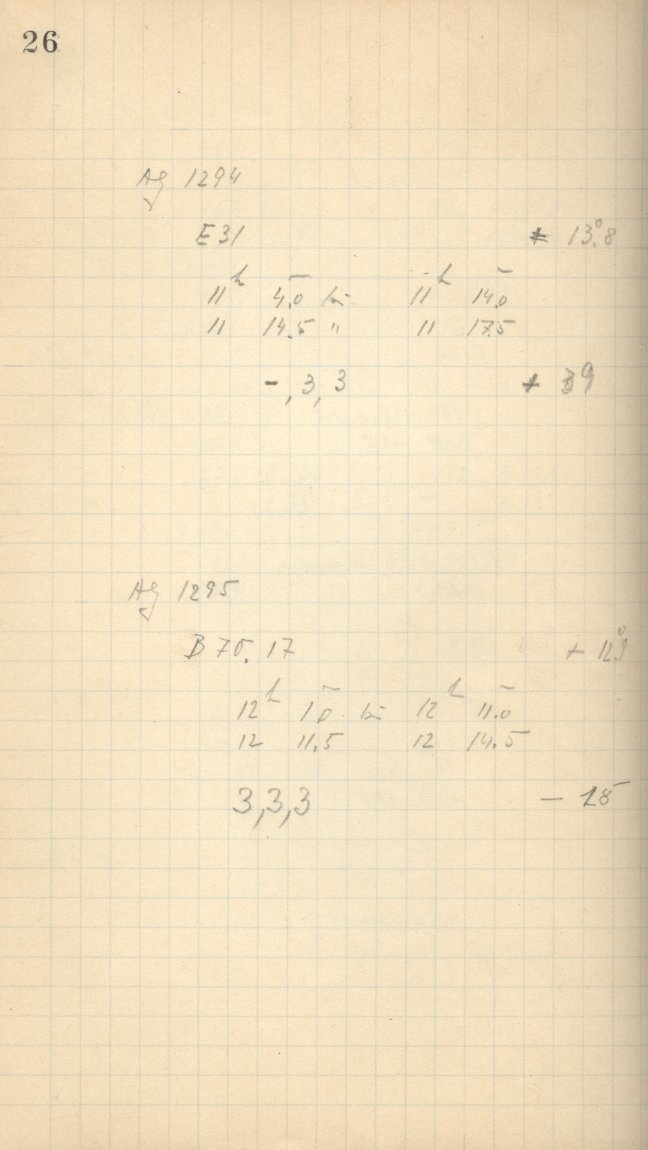 26
Ag 1294
E 31 + 13°.8
11h 4.0 bis 11h 14.0
11 14.5 " 11 17.5
-, 3, 3 + 39
Ag 1295
B 75. 17 + 11°.9
12h 1.0 bis 12h 11.0
12 11.5 12 14.5
3, 3, 3 — 18